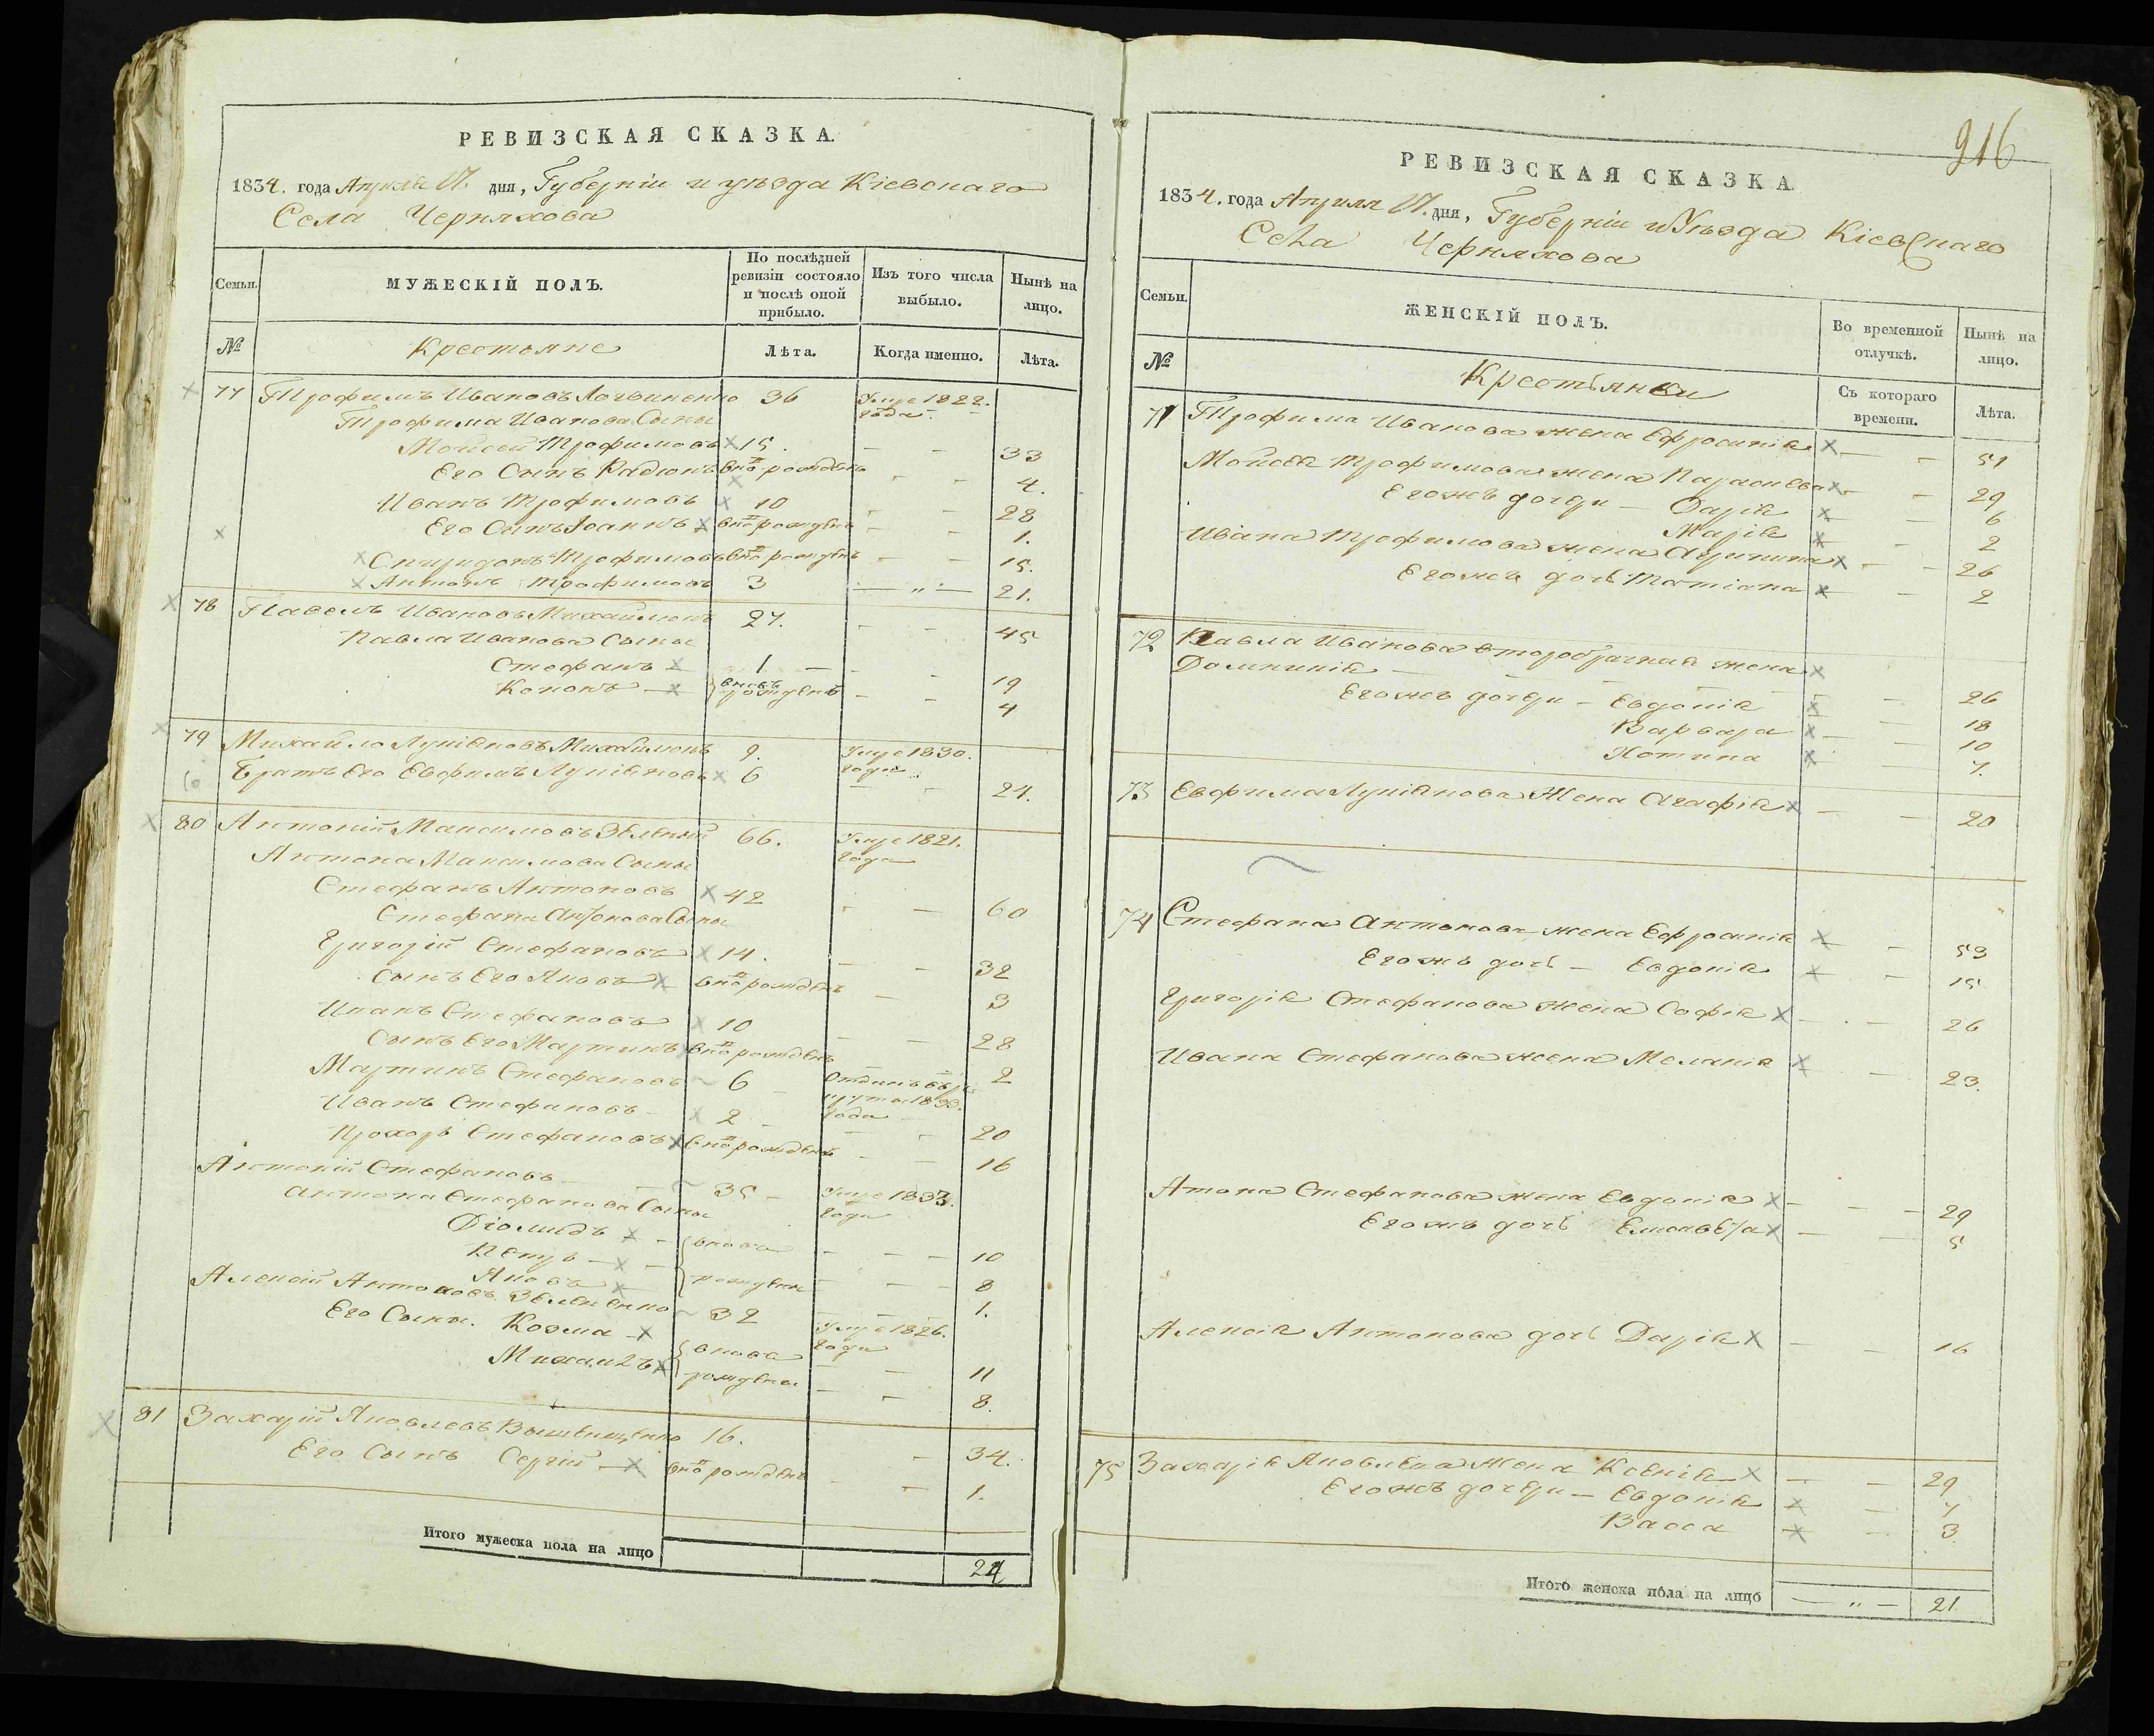 РЕВИЗСКАЯ СКАЗКА.
1834. года Апреля 17. дня, Губерніи и уѣзда Кіевскаго
Села Черняхова
Семьи.
МУЖЕСКІЙ ПОЛЪ.
По послѣдней ревизіи состояло и послѣ оной прибыло.
Изъ того числа выбыло.
Нынѣ на лицо.
№
Крестьяне
Лѣта.
Когда именно.
Лѣта.
77 Трофимъ Ивановъ Логвиненко 36 Умре 1822. года
Трофима Иванова Сыны
Мойсей Трофимовъ 15. 33
Его Сынъ Радіонъ внѡ рожденъ 4.
Иванъ Трофимовъ 10 28
Его Сынъ Іоаннъ внѡ рожденъ 1.
Спиридонъ Трофимовъ внѡ рожденъ 15.
Антонъ Трофимовъ 3 — „ — 21.
78 Павелъ Ивановъ 27. 45
Павла Иванова Сыны
Стефанъ 1 19
Кононъ вновь рожденъ 4
79 Михайло Лукіяновъ 9. Умре 1830. года
Братъ Его Евфимъ Лукіяновъ 6 24.
80 Антоній Максимовъ Зѣленый 66. Умре 1821. года
Антона Максимова Сыны
Стефанъ Антоновъ 42 60
Стефана Антонова Сыны
Григорій Стефановъ 14. 32
Сынъ Его Яковъ внѡ рожденъ 3
Иванъ Стефановъ 10 28
Сынъ Его Мартинъ внѡ рожденъ 2
Мартинъ Стефановъ 6 Отданъ въ рекруты 1833. года
Иванъ Стефановъ 2 20
Прохоръ Стефановъ внѡ рожденъ 16
Антоній Стефановъ 35 Умре 1833. года
Антона Стефанова Сыны
Діомидъ вновь 10
Петръ рождены 8
Яковъ 1.
Алексій Антоновъ Зѣленѣнко 32 Умре 1826. года
Его Сыны. Козма вновь 11
Михаилъ рождены 8.
81 Захарій Яковлевъ 16. 34.
Его Сынъ Сергій внѡ рожденъ 1.
Итого мужеска пола на лицо 24
916
РЕВИЗСКАЯ СКАЗКА.
1834. года Апреля 17. дня, Губерніи и Уѣзда Кіевскаго
Села Черняхова
Семьи.
ЖЕНСКІЙ ПОЛЪ.
Во временной отлучкѣ.
Нынѣ на лицо.
№
Крестьянки
Съ котораго времени.
Лѣта.
71 Трофима Иванова жена Ефросинія 51
Мойсея Трофимова жена Параскева 29
Егожъ дочери — Дарія 6
Марія 2
Ивана Трофимова жена Агрипина 26
Егожъ дочь Татіана 2
72 Павла Иванова второбрачная жена
Домникія 26
Егожъ дочери — Евдокія 18
Варвара 10
Хотина 7.
73 Евфима Лукіянова Жена Агафія 20
74 Стефана Антонова жена Ефросинія 53
Егожъ дочь — Евдокія 15
Григорія Стефанова Жена Софія 26
Ивана Стефанова жена Меланія 23.
Атона Стефанова жена Евдокія 29
Егожъ дочь 5
Алексія Антонова дочь Дарія 16
75 Захарія Яковлева Жена Ксенія 29
Егожъ дочери — Евдокія 7
Васса 3.
Итого женска пола на лицо — „ — 21.